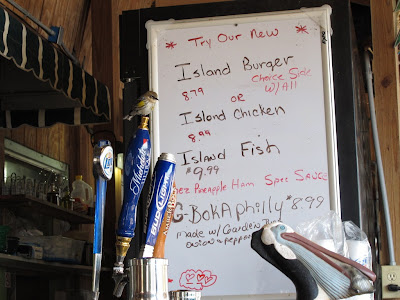 * Try Our New *
Island Burger
8.79
Choice Side
W/All
OR
Island Chicken
8.99
Island Fish
$9.99
Pineapple Ham Spec Sauce
G-BokA philly $8.99
made w/
onion & peppers
Michelob
Bud Light
Lite